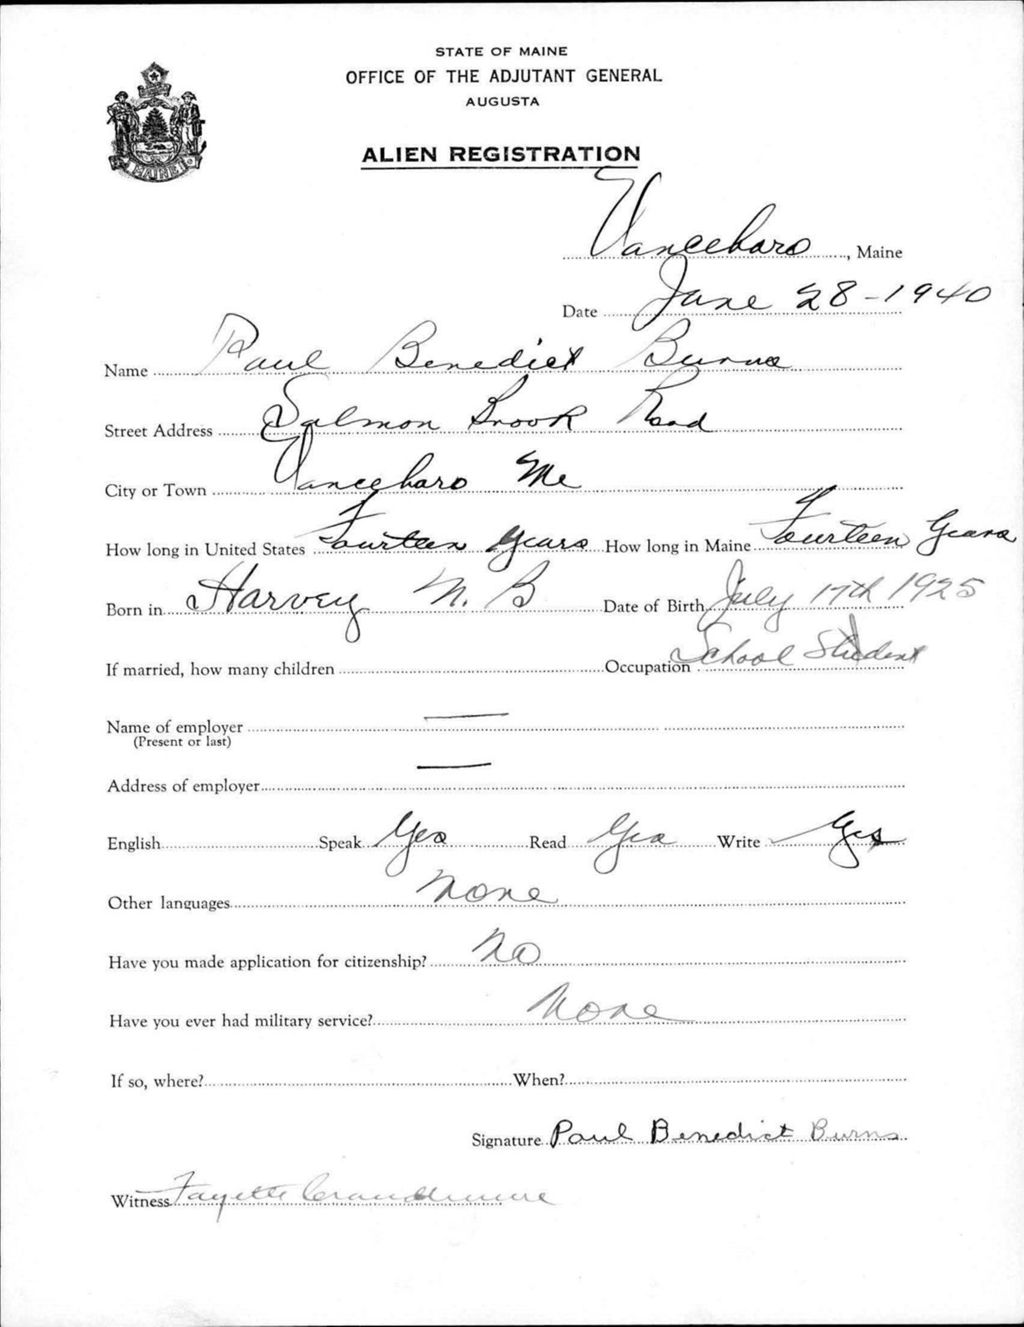 STATE OF MAINE
OFFICE OF THE ADJUTANT GENERAL
AUGUSTA
ALIEN REGISTRATION
MAINE
Vanceboro, Maine
Date June 28-1940
Name Paul Benedict Burns
Street Address Salmon Brook Road
City or Town Vanceboro Me
How long in United States Fourteen Years How long in Maine Fourteen Years
Born in Harvey N. B Date of Birth July 17th 1925
If married, how many children Occupation School Student
Name of employer —
(Present or last)
Address of employer —
English Speak Yes Read Yes Write Yes
Other languages None
Have you made application for citizenship? No
Have you ever had military service? None
If so, where? When?
Signature Paul Benedict Burns
Witness Fayette